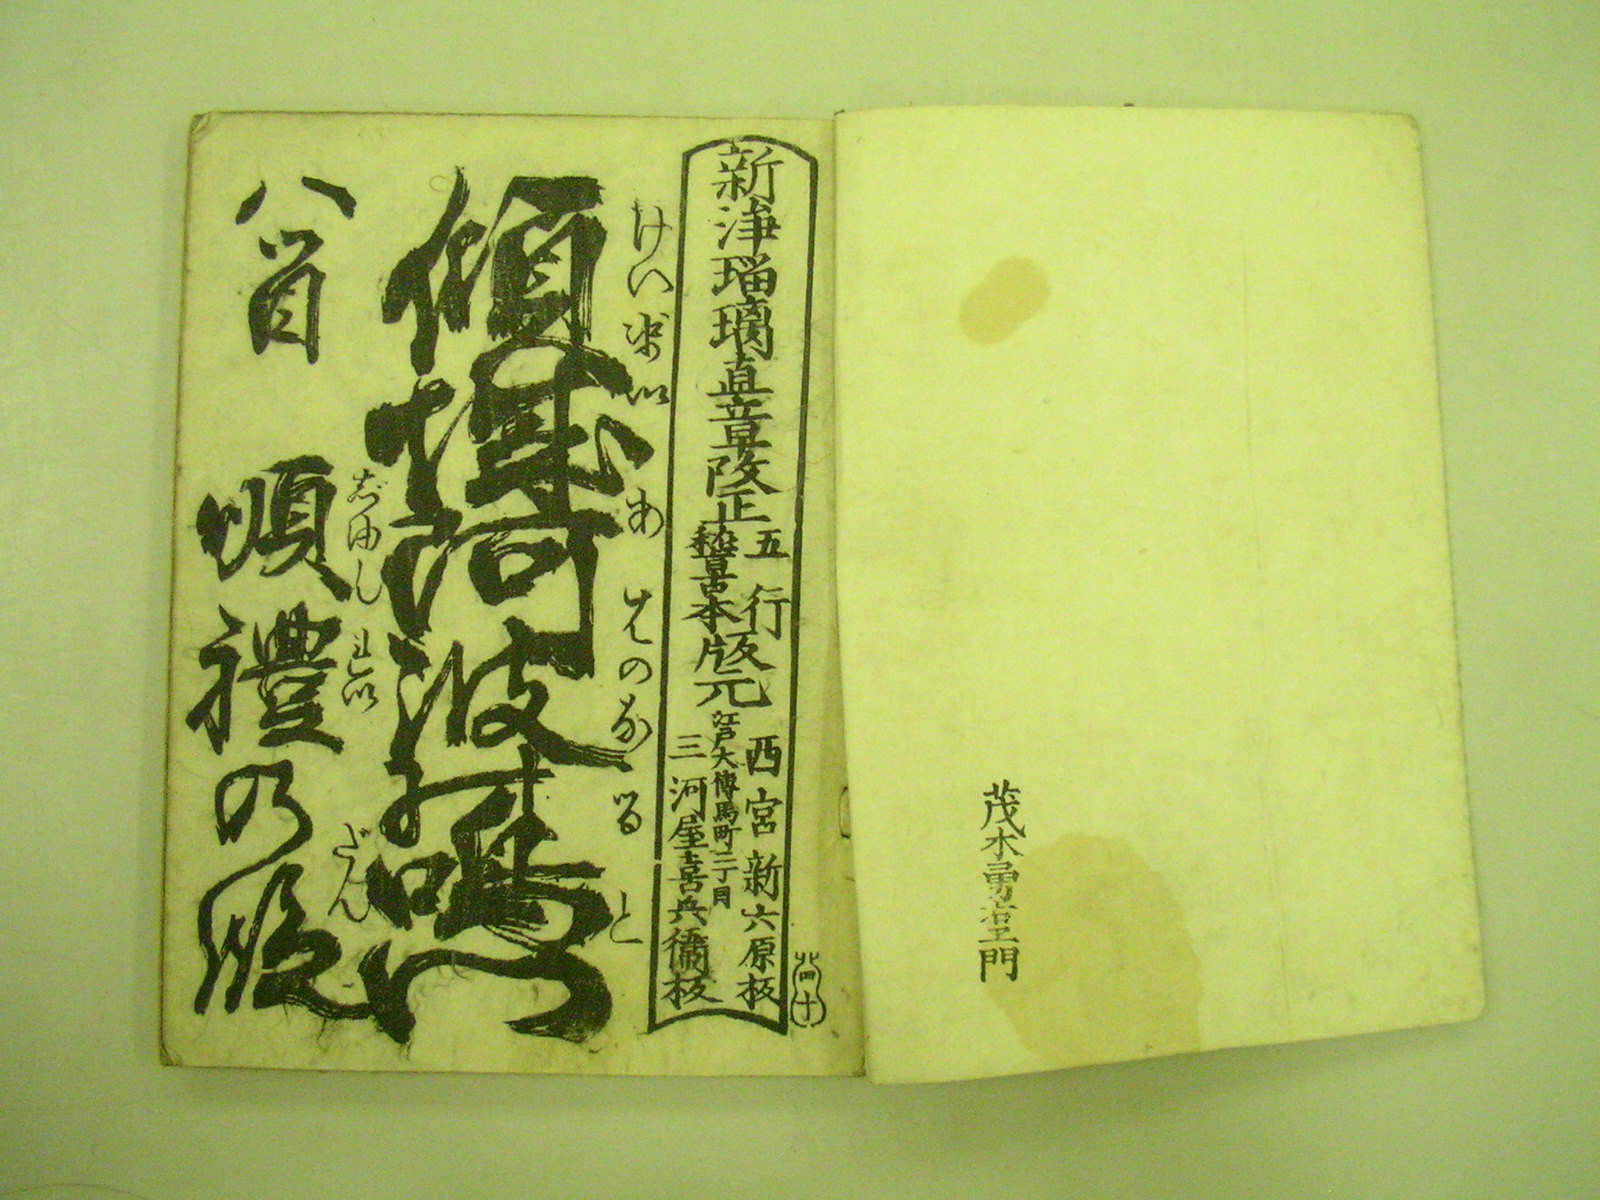 茂木勇右エ門
新浄瑠璃直章改正
五行
稽古本版元
西宮新六原板
江戸大傳馬町二丁目
三河屋喜兵衛板
けいせいあはのなると
傾城阿波の鳴門
八冊目
じゆんれい
だん
順禮の段